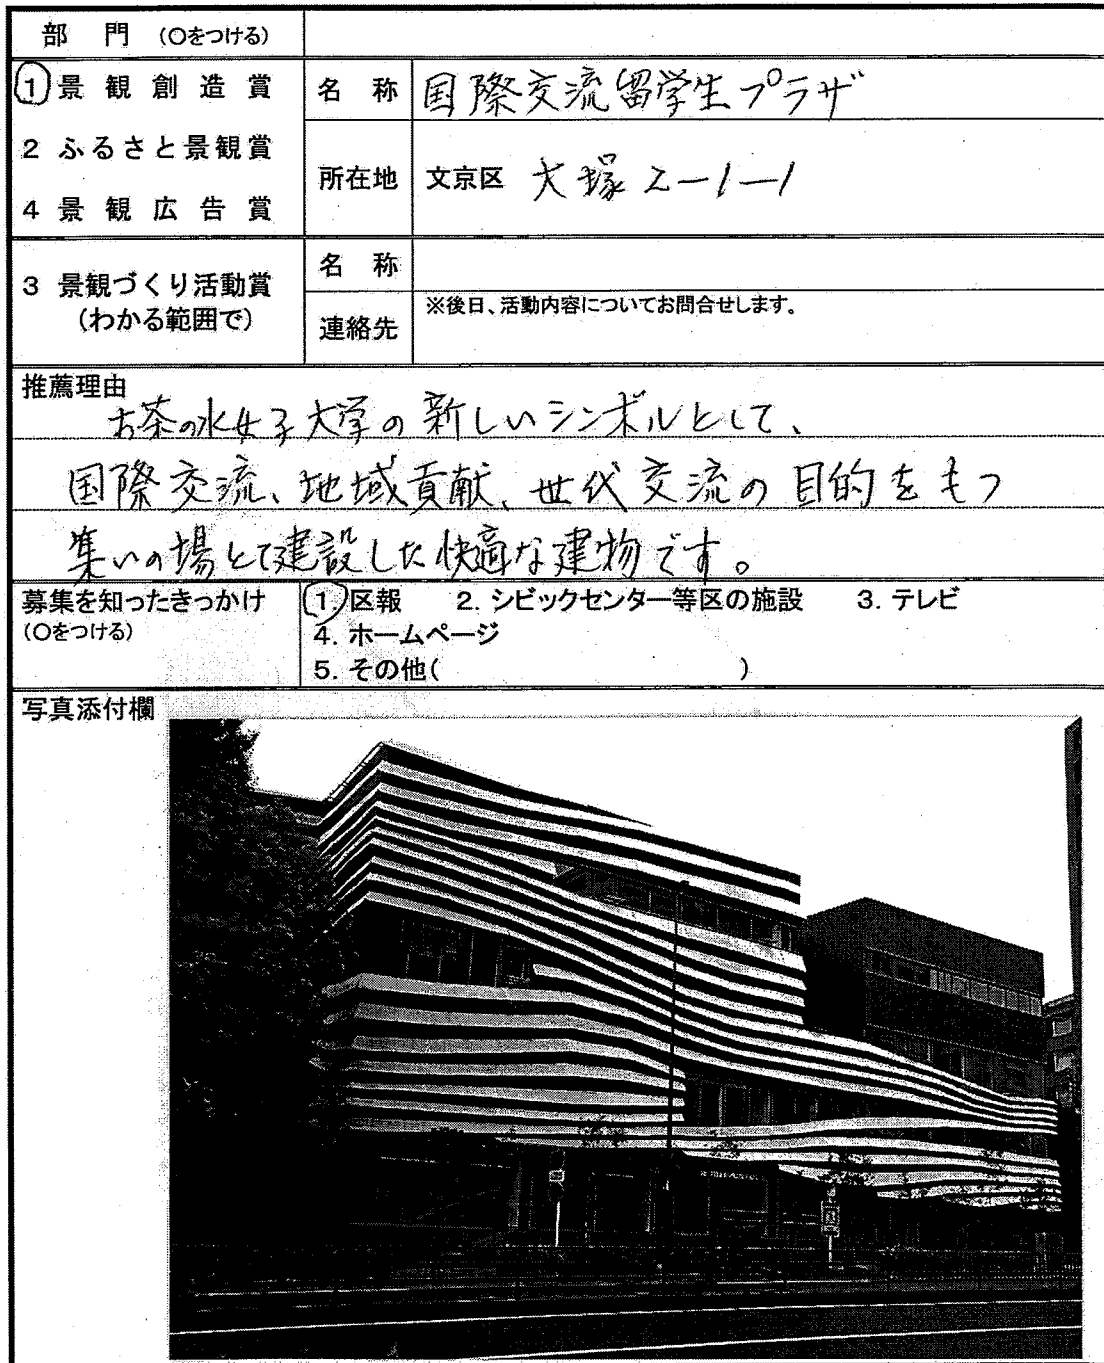 部 門 (○をつける)
1 景観創造賞
2 ふるさと景観賞
4 景観広告賞
名 称 国際交流留学生プラザ
所在地 文京区 大塚2-1-1
3 景観づくり活動賞
(わかる範囲で)
名 称
連絡先 ※後日、活動内容についてお問合せします。
推薦理由
お茶の水女子大学の新しいシンボルとして、
国際交流、地域貢献、世代交流の目的をもつ
集いの場とて建設した快適な建物です。
募集を知ったきっかけ
(○をつける)
1. 区報 2. シビックセンター等区の施設 3. テレビ
4. ホームページ
5. その他( )
写真添付欄